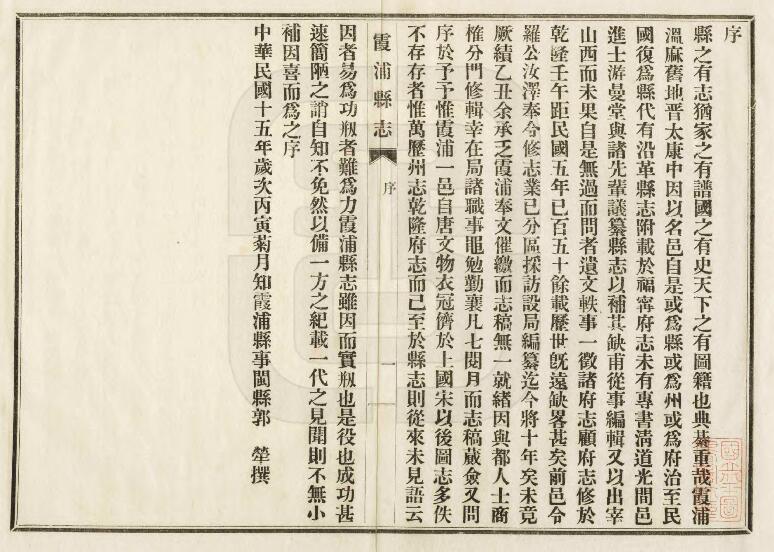 序
縣之有志猶家之有譜國之有史天下之有圖籍也典綦重哉霞浦
溫麻舊地晋太康中因以名邑自是或爲縣或爲州或爲府治至民
國復爲縣代有沿革縣志附載於福寧府志未有專書淸道光間邑
進士游曼堂與諸先輩議纂縣志以補其缺甫從事編輯又以出宰
山西而未果自是無過而問者遺文軼事一徵諸府志顧府志修於
乾隆壬午距民國五年已百五十餘載歷世旣遠缺畧甚矣前邑令
羅公汝澤奉令修志業已分區採訪設局編纂迄今將十年矣未竟
厥績乙丑余承乏霞浦奉文催繳而志稿無一就緒因與都人士商
榷分門修輯幸在局諸職事黽勉勤襄凡七閱月而志稿蕆僉又問
序於予予惟霞浦一邑自唐文物衣冠儕於上國宋以後圖志多佚
不存存者惟萬歷州志乾隆府志而已至於縣志則從來未見語云
霞浦縣志
序
一
因者易爲功剏者難爲力霞浦縣志雖因而實剏也是役也成功甚
速簡陋之誚自知不免然以備一方之紀載一代之見聞則不無小
補因喜而爲之序
中華民國十五年歲次丙寅菊月知霞浦縣事閩縣郭 犖撰